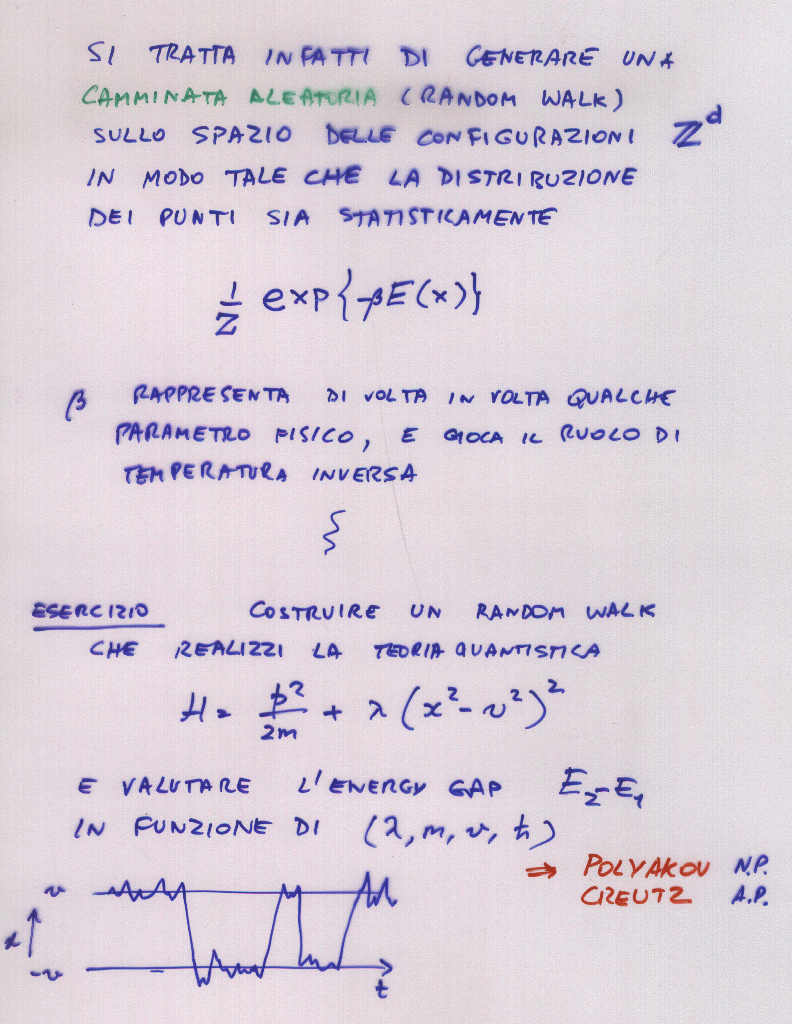 SI TRATTA INFATTI DI GENERARE UNA
CAMMINATA ALEATORIA (RANDOM WALK)
SULLO SPAZIO DELLE CONFIGURAZIONI ℤ^d
IN MODO TALE CHE LA DISTRIBUZIONE
DEI PUNTI SIA STATISTICAMENTE
1/Z exp{-βE(x)}
β RAPPRESENTA DI VOLTA IN VOLTA QUALCHE
PARAMETRO FISICO, E GIOCA IL RUOLO DI
TEMPERATURA INVERSA
ESERCIZIO COSTRUIRE UN RANDOM WALK
CHE REALIZZI LA TEORIA QUANTISTICA
H = p²/2m + λ(x²-v²)²
E VALUTARE L'ENERGY GAP E₂-E₁
IN FUNZIONE DI (λ, m, v, ħ)
⇒ POLYAKOV N.P.
CREUTZ A.P.
v
x
-v
t